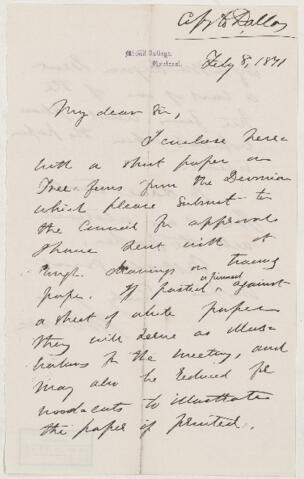 McGill College,
Montreal.
Feby 8, 1871
My dear Sir,
I enclose here-
with a short paper on
Tree-ferns from the Devonian
which please submit to
the Council for approval
I have sent with it
rough drawings on tracing
paper. If pasted or pinned against
a sheet of white paper
they will serve as illus-
trations for the meeting, and
may also be reduced for
woodcuts to illustrate
the paper if printed.